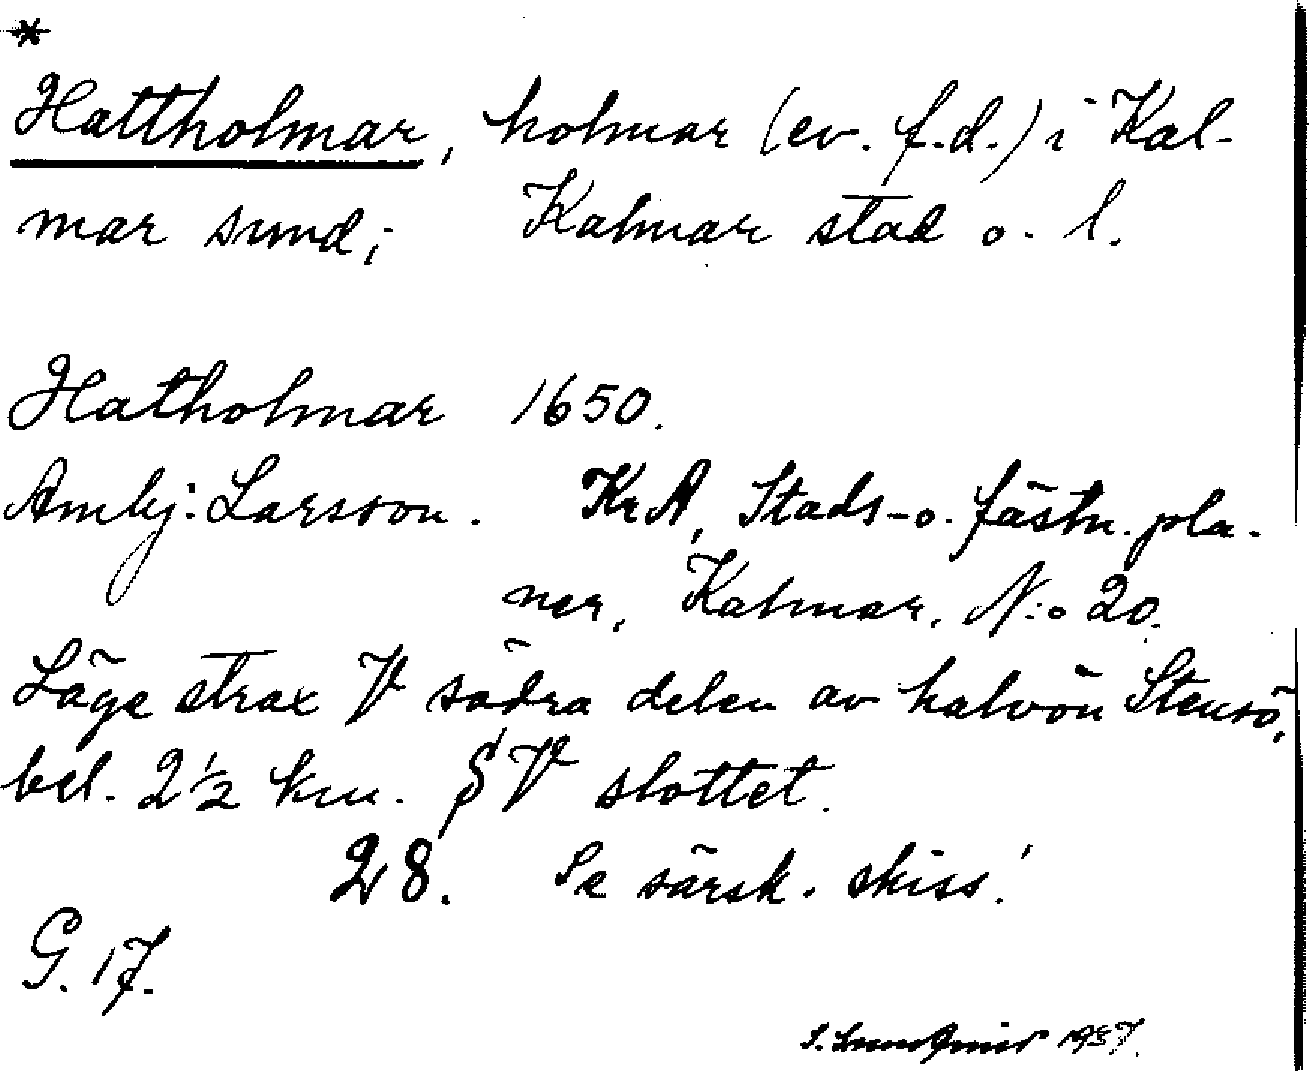 *
Hattholmar, holmar (ev. f.d.) i Kal-
mar sund; Kalmar stad o. l.
Hatholmar 1650.
Ambj: Larsson. KrA, Stads- o. fästn. pla-
ner, Kalmar, N:o 20.
Läge strax V södra delen av halvön Stensö,
bel. 2 1/2 km. S V slottet.
28. Se särsk. skiss!
G. 17.
S. 1937.